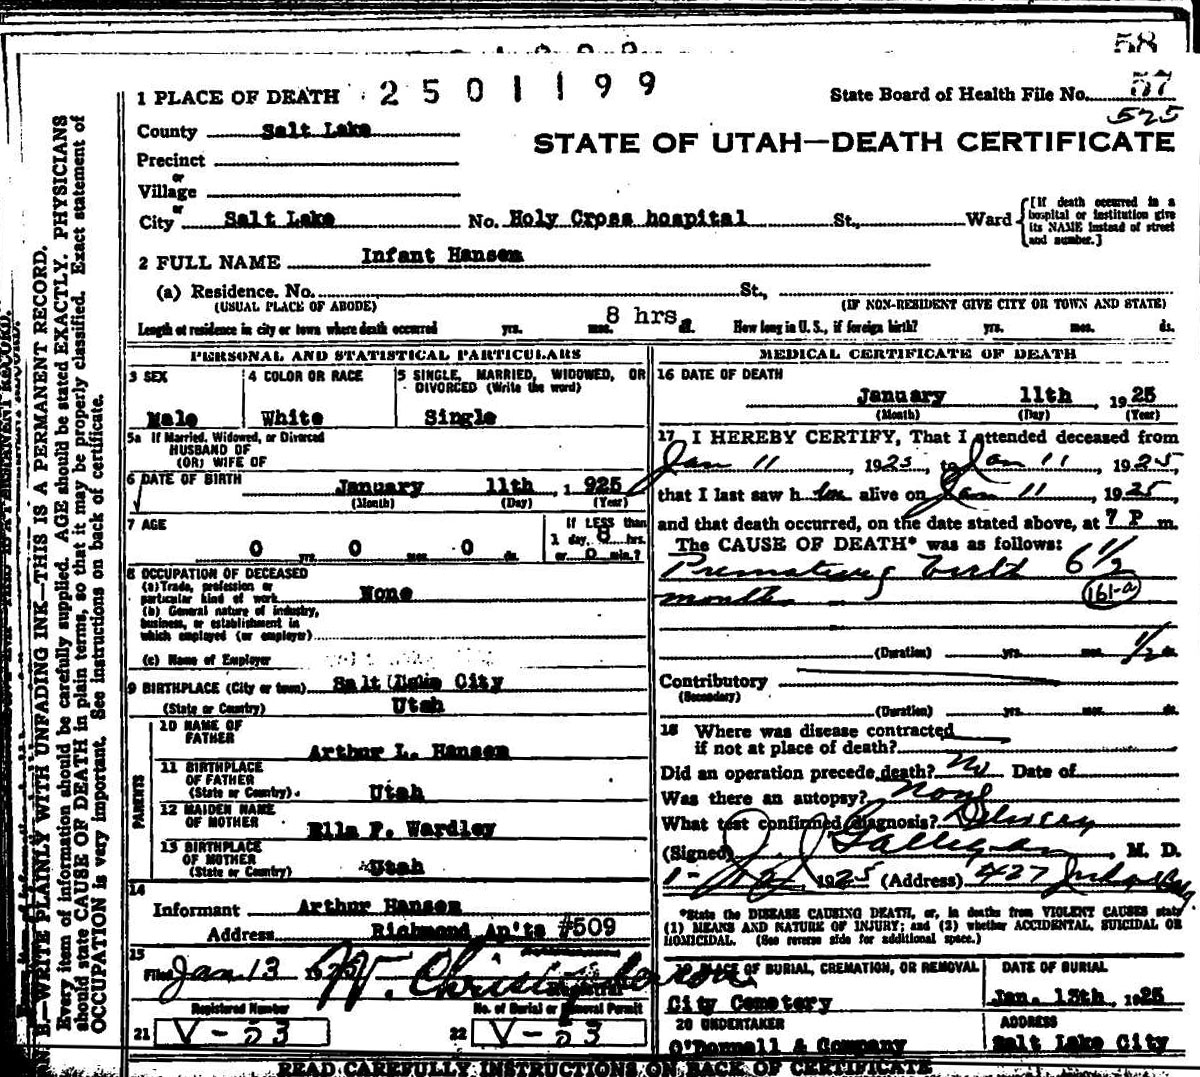 58
1 PLACE OF DEATH 2501199
State Board of Health File No. 57
525
County Salt Lake
STATE OF UTAH—DEATH CERTIFICATE
Precinct
or
Village
or
City Salt Lake No. Holy Cross hospital St., Ward
[If death occurred in a hospital or institution give its NAME instead of street and number.]
2 FULL NAME Infant Hansen
(a) Residence. No. St.,
(USUAL PLACE OF ABODE) (IF NON-RESIDENT GIVE CITY OR TOWN AND STATE)
Length of residence in city or town where death occurred yrs. mos. 8 hrs. ds. How long in U. S., if foreign birth? yrs. mos. ds.
PERSONAL AND STATISTICAL PARTICULARS
3 SEX 4 COLOR OR RACE 5 SINGLE, MARRIED, WIDOWED, OR
DIVORCED (Write the word)
Male White Single
5a If Married, Widowed, or Divorced
HUSBAND OF
(OR) WIFE OF
6 DATE OF BIRTH January 11th, 1925
(Month) (Day) (Year)
7 AGE If LESS than
1 day, 8 hrs.
0 yrs. 0 mos. 0 ds. or 0 min.?
8 OCCUPATION OF DECEASED
(a) Trade, profession or
particular kind of work None
(b) General nature of industry,
business, or establishment in
which employed (or employer)
(c) Name of Employer
9 BIRTHPLACE (City or town) Salt Lake City
(State or Country) Utah
PARENTS
10 NAME OF
FATHER Arthur L. Hansen
11 BIRTHPLACE
OF FATHER
(State or Country) Utah
12 MAIDEN NAME
OF MOTHER Ella F. Wardley
13 BIRTHPLACE
OF MOTHER
(State or Country) Utah
14
Informant Arthur Hansen
Address Richmond Ap'ts #509
15
Filed Jan 13 1925 W. Christopherson
Registrar
Registered Number No. of Burial or Removal Permit
21 V-53 22 V-53
MEDICAL CERTIFICATE OF DEATH
16 DATE OF DEATH
January 11th 1925
(Month) (Day) (Year)
17 I HEREBY CERTIFY, That I attended deceased from
Jan 11, 1925, to Jan 11, 1925,
that I last saw h im alive on Jan 11, 1925,
and that death occurred, on the date stated above, at 7 P m.
The CAUSE OF DEATH* was as follows:
Premature birth 6 1/2
months 161-a
(Duration) yrs. mos. 1/2 ds.
Contributory
(Secondary)
(Duration) yrs. mos. ds.
18 Where was disease contracted
if not at place of death?
Did an operation precede death? No Date of
Was there an autopsy? None
What test confirmed diagnosis? Delivery
(Signed) J. J. Galligan, M. D.
1-12, 1925 (Address) 427 Judge Bldg.
*State the DISEASE CAUSING DEATH, or, in deaths from VIOLENT CAUSES state
(1) MEANS AND NATURE OF INJURY; and (2) whether ACCIDENTAL, SUICIDAL OR
HOMICIDAL. (See reverse side for additional space.)
PLACE OF BURIAL, CREMATION, OR REMOVAL DATE OF BURIAL
City Cemetery Jan. 13th, 1925
20 UNDERTAKER ADDRESS
O'Donnell & Company Salt Lake City
READ CAREFULLY INSTRUCTIONS ON BACK OF CERTIFICATE
B.—WRITE PLAINLY WITH UNFADING INK—THIS IS A PERMANENT RECORD.
Every item of information should be carefully supplied. AGE should be stated EXACTLY. PHYSICIANS
should state CAUSE OF DEATH in plain terms, so that it may be properly classified. Exact statement of
OCCUPATION is very important. See instructions on back of certificate.